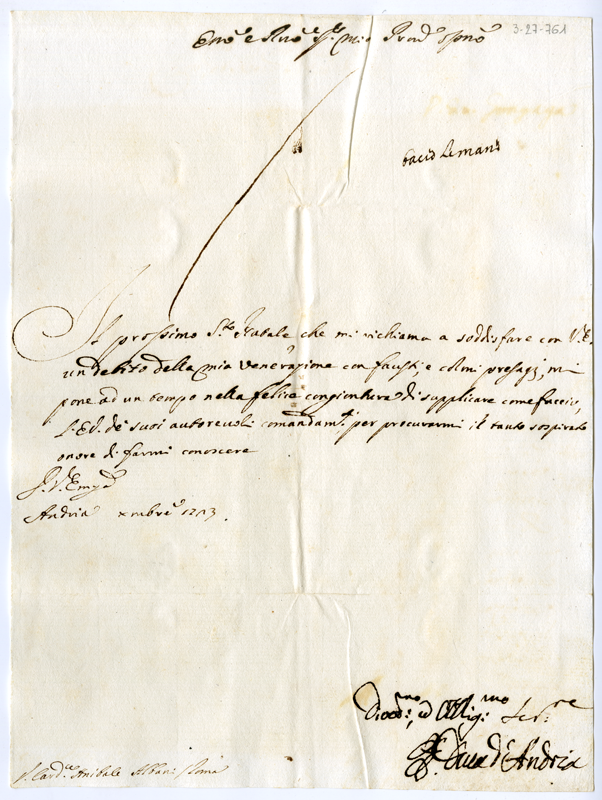 3-27-761
Em.o e Rev.o Sig.r mio Prōn Ossm̃o
bacio le mani
Il prossimo S.to Natale che mi richiama a soddisfare con V.E.
un debito della mia venerazione con fausti, e colmi presagj, mi
pone ad un tempo nella felice congiontura di supplicare come faccio,
l'E.V. de suoi autorevoli comandam.ti per procurarmi il tanto sospirato
onore di farmi conoscere
Di V. Em.za
Andria xmbre 1713.
Divotis.mo, ed Obblig.mo Ser.re
Duca d'Andria
S. Card.le Anibale Albani Roma